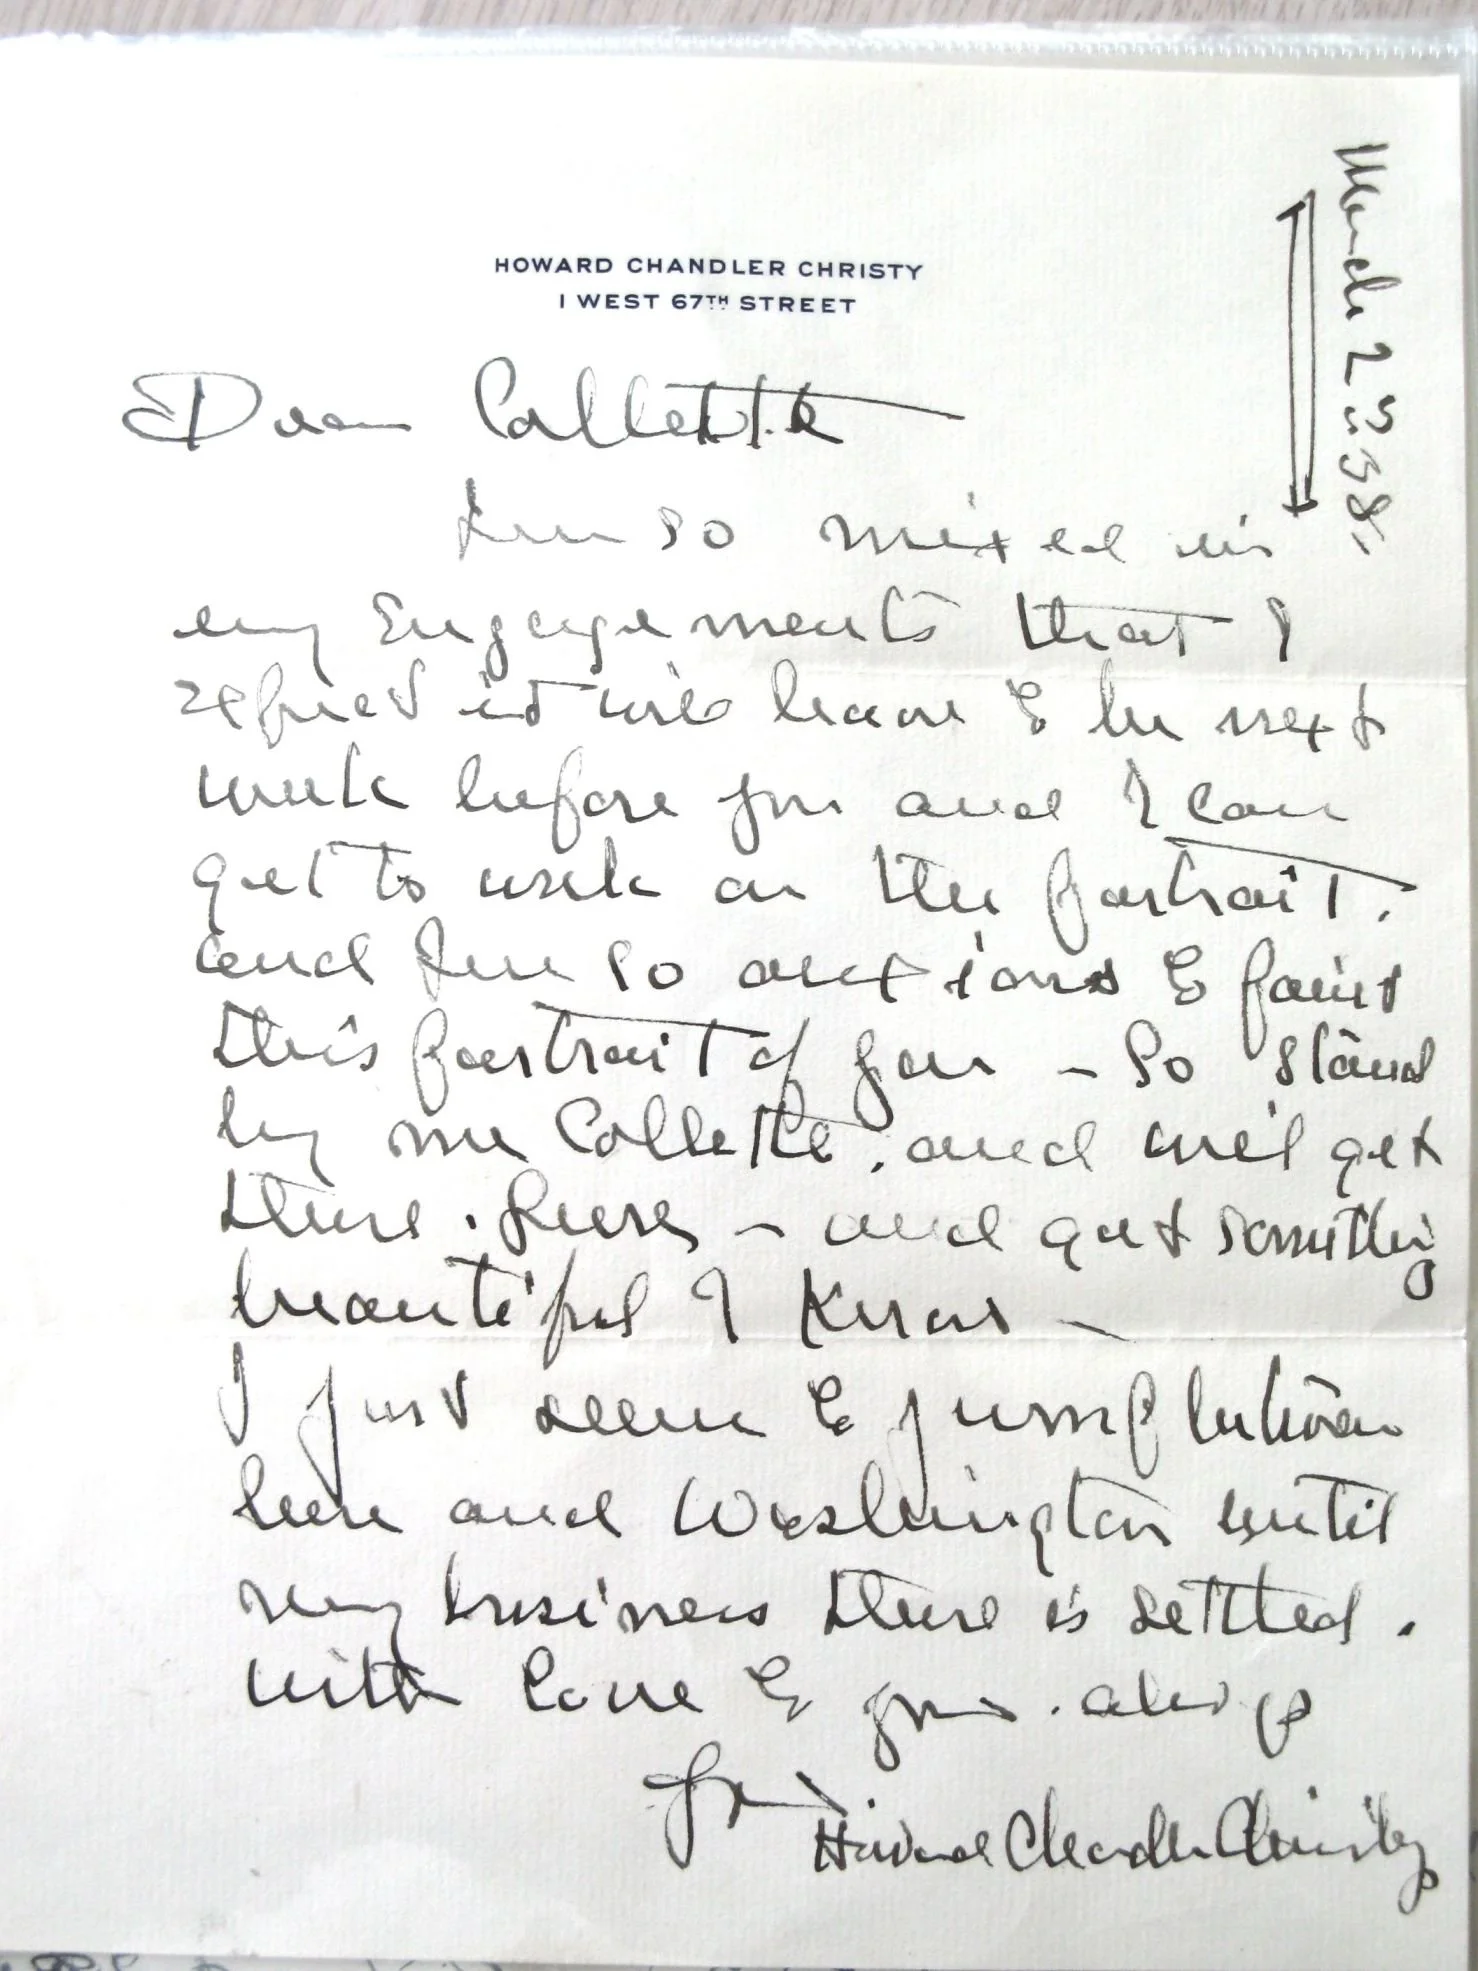 HOWARD CHANDLER CHRISTY
1 WEST 67TH STREET
March 23" 38.
Dear Collette
I'm so mixed in
my Engagements that I
expect it will have to be next
week before you and I can
get to work on the portrait.
and I'm so anxious to paint
this portrait of you – So stand
by me Collette. and we'll get
there. – and get something
beautiful I know –
I just seem to jump between
here and Washington until
my business there is settled.
with love to you. always
Your
Howard Chandler Christy